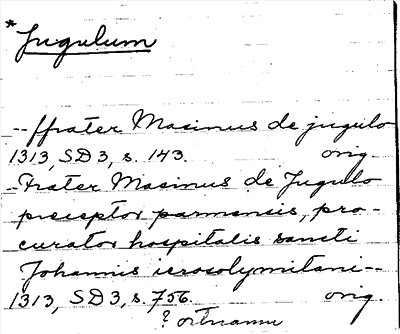 *Jugulum
-- ffrater Masinus de jugulo
1313, SD 3, s. 143. orig.
-- Frater Masinus de Jugulo
preceptor parmensis, pro-
curator hospitalis sancti
Johannis ierosolymitani --
1313, SD 3, s. 756. orig.
? ortnamn